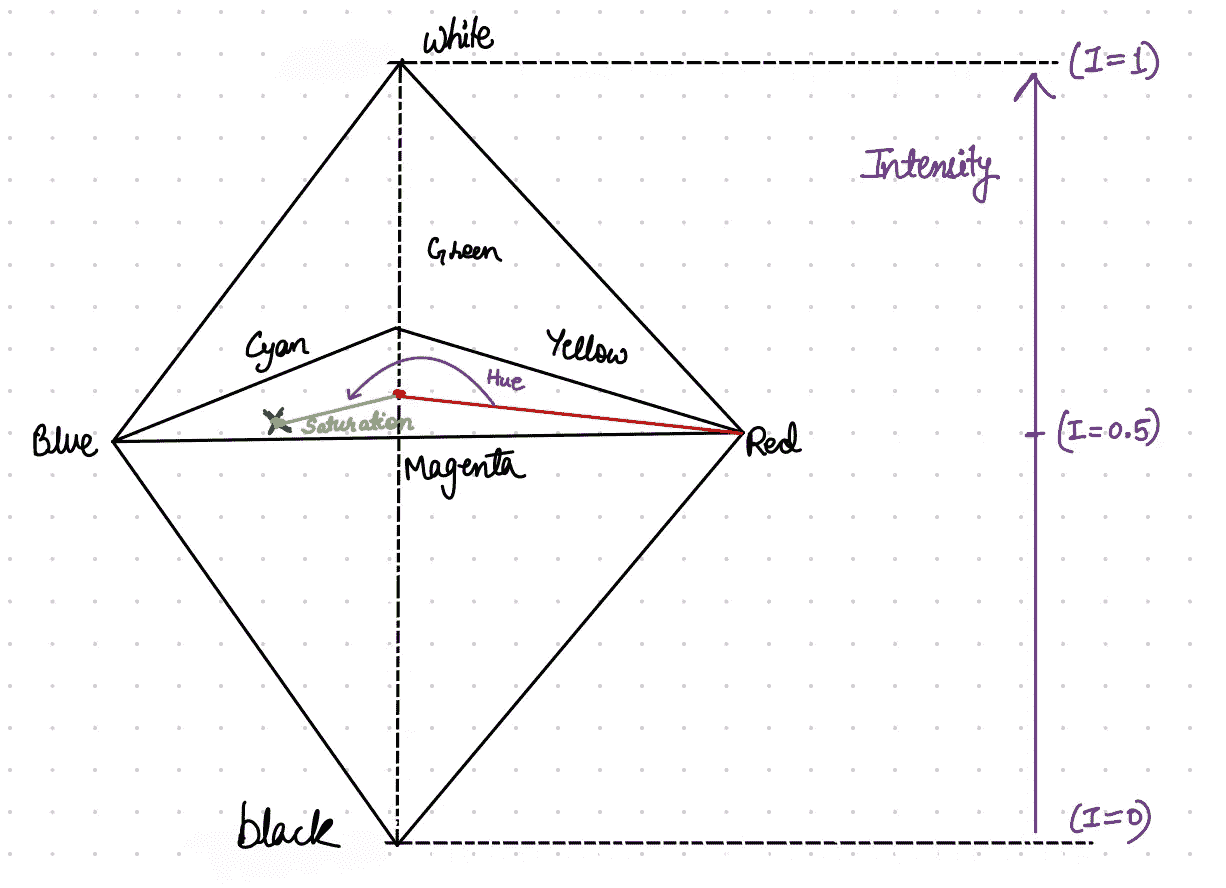 White
(I=1)
Intensity
Green
Cyan
Yellow
Hue
Saturation
Blue
Red
(I=0.5)
Magenta
black
(I=0)